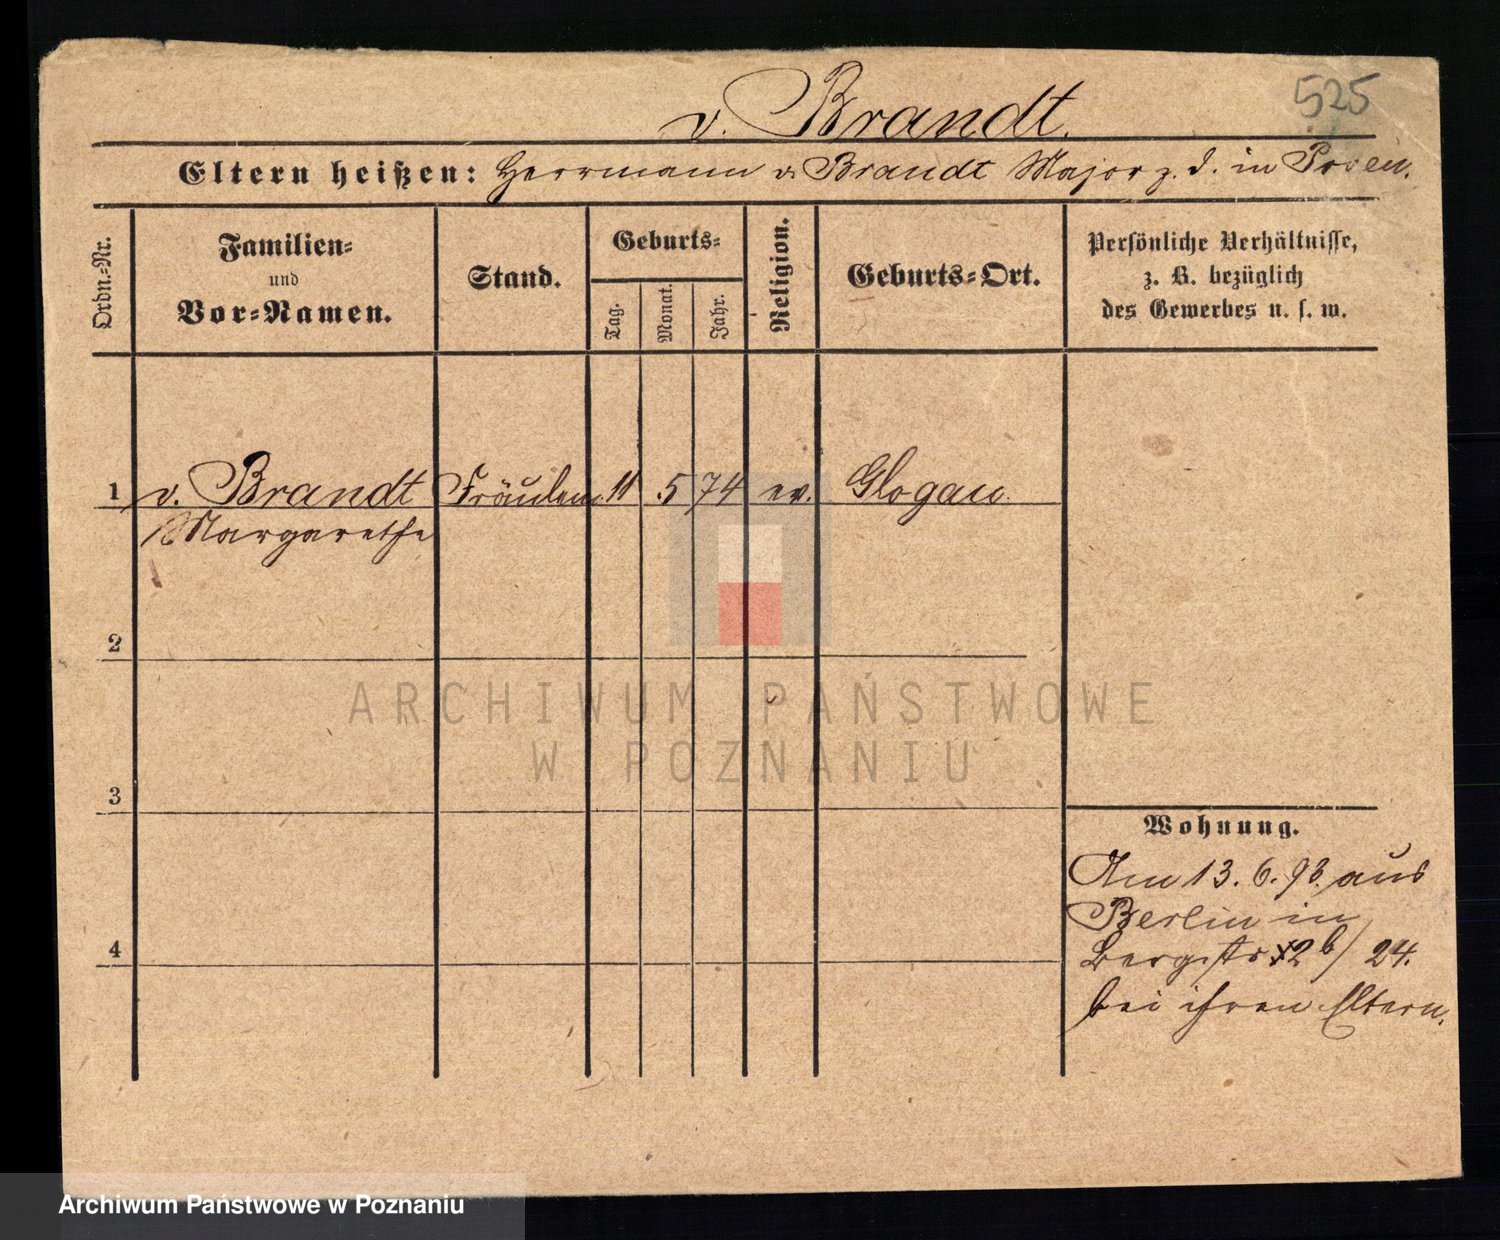 525
v. Brandt.
Eltern heißen: Herrmann v. Brandt Major z. D. in Posen.
Ordn.-Nr.
Familien-
und
Vor-Namen.
Stand.
Geburts-
Tag.
Monat.
Jahr.
Religion.
Geburts-Ort.
Persönliche Verhältnisse,
z. B. bezüglich
des Gewerbes u. s. w.
1 v. Brandt Fräulein 11 5 74 ev. Glogau.
Margarethe
2
ARCHIWUM PAŃSTWOWE
W POZNANIU
3
Wohnung.
Am 13. 6. 93. aus
Berlin in
Bergstr 12 b/ 24.
bei ihren Eltern.
4
Archiwum Państwowe w Poznaniu